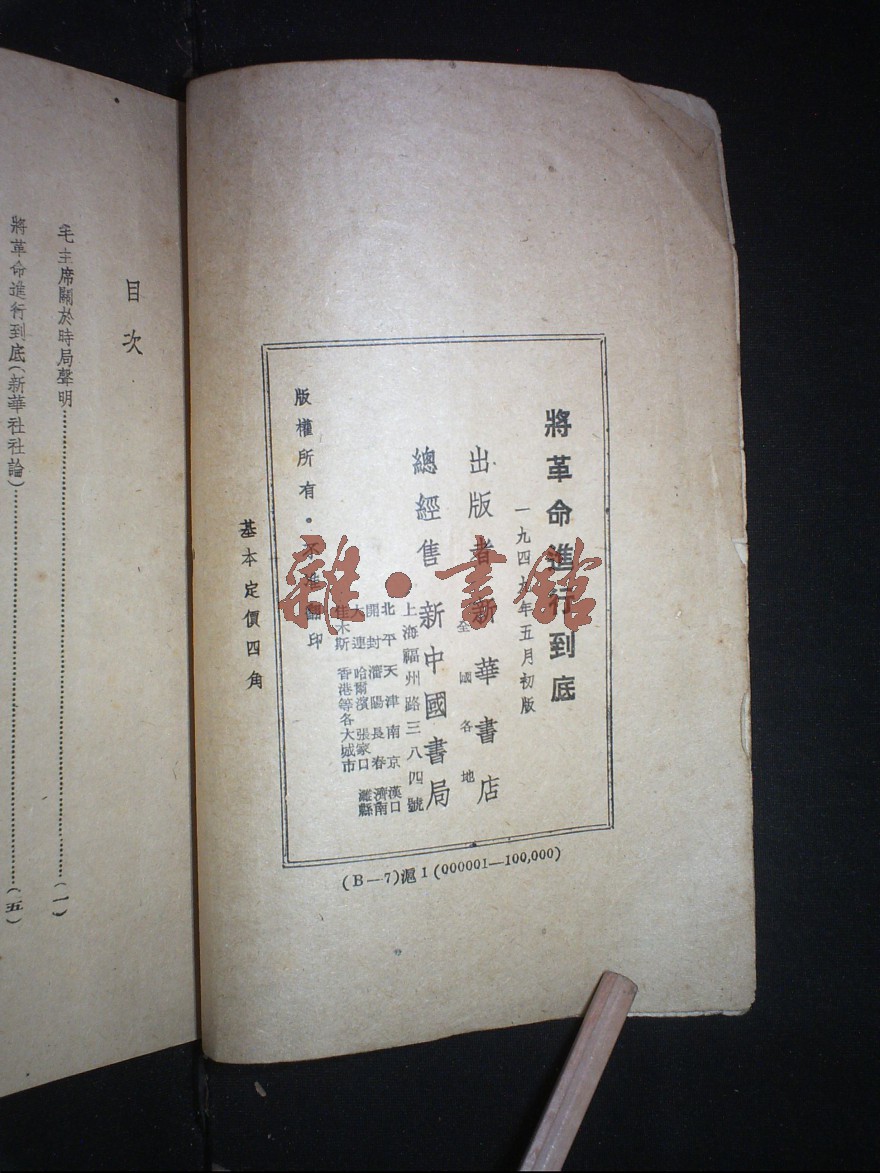 將革命進行到底
一九四九年五月初版
出版者新華書店
全國各地
總經售新中國書局
上海福州路三八四號
北平 天津 南京 漢口
開封 瀋陽 長春 濟南
大連 哈爾濱 張家口 濰縣
佳木斯 香港等各大城市
版權所有·不准翻印
基本定價四角
(B—7)滬1(000001—100,000)
目次
毛主席關於時局聲明……(一)
將革命進行到底(新華社社論)……(五)
雜·書館